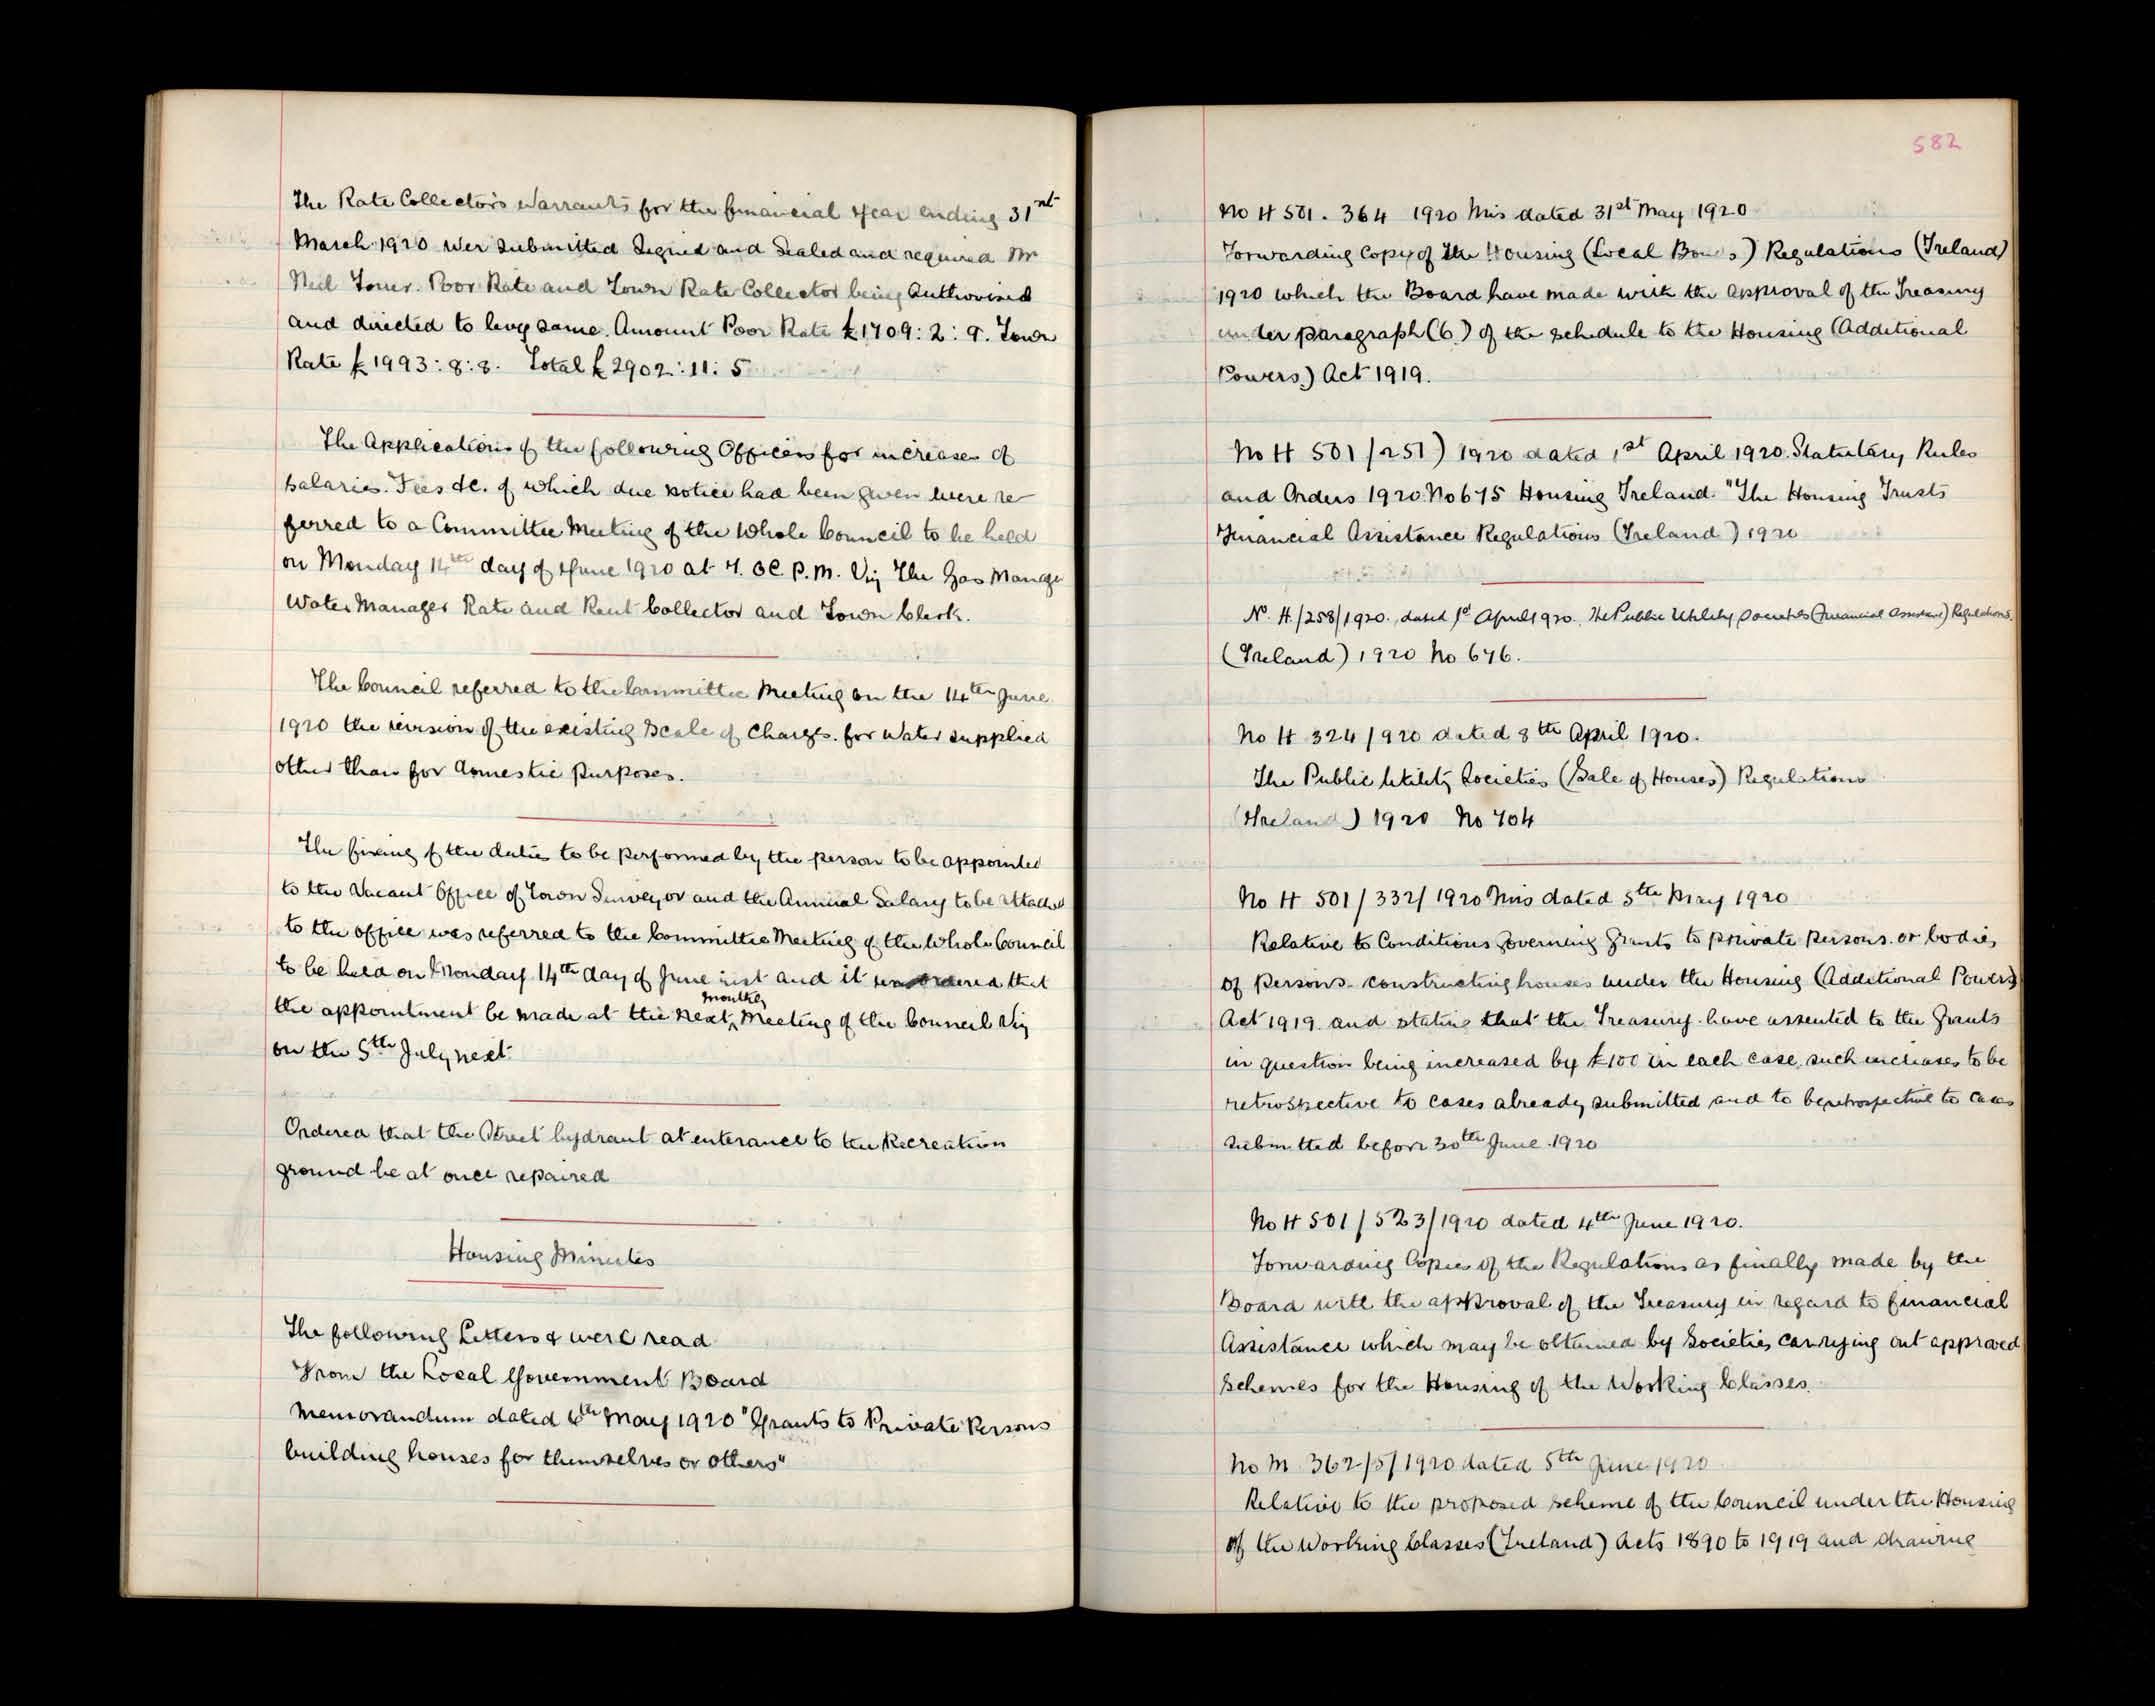 The Rate Collectors Warrants for the financial year ending 31st
March 1920 wer submitted Signed and Sealed and required Mr
Neil Poor Rate and Town Rate Collector being Authorised
and directed to levy same. Amount Poor Rate £1709:2:9. Town
Rate £1993:8:8. Total £2902:11:5
The Applications of the following Officers for increase of
Salaries. Fees &c. of which due notice had been given were re-
ferred to a Committee Meeting of the Whole Council to be held
on Monday 14th day of June 1920 at 7. OC P.M. Viz The Gas Manager
Water Manager Rate and Rent Collector and Town Clerk.
The Council referred to the Committee Meeting on the 14th June
1920 the revision of the existing Scale of Charges. for Water supplied
other than for domestic purposes.
The fixing of the duties to be performed by the person to be appointed
to the Vacant Office of Town Surveyor and the Annual Salary to be attached
to the office was referred to the Committee Meeting of the Whole Council
to be held on Monday 14th day of June inst and it was ordered that
the appointment be made at the next monthly Meeting of the Council Viz
on the 5th July next.
Ordered that the Street hydrant at enterance to the Recreation
ground be at once repaired
Housing Minutes
The following Letters & were read
From the Local Government Board
Memorandum dated 6th May 1920 "Grants to Private Persons
building houses for themselves or others"
582
No H 501. 364 1920 Mis dated 31st May 1920
Forwarding Copy of The Housing (Local Bonds) Regulations (Ireland)
1920 which the Board have made with the approval of the Treasury
under paragraph (6) of the schedule to the Housing (Additional
Powers) Act 1919.
No H 501/251) 1920 dated 1st April 1920. Statutary Rules
and Orders 1920. No 675 Housing Ireland. "The Housing Trusts
Financial Assistance Regulations (Ireland) 1920
No. H./258/1920., dated 1st April 1920. The Public Utility Societies (Financial Assistance) Regulations.
(Ireland) 1920 No 676.
No H 324/920 dated 8th April 1920.
The Public Utility Societies (Sale of Houses) Regulations
(Ireland) 1920 No 704
No H 501/332/1920 Mis dated 5th May 1920
Relative to Conditions governing grants to private persons. or bodies
of persons- constructing houses under the Housing (Additional Powers)
Act 1919. and stating that the Treasury have assented to the grants
in question being increased by £100 in each case, such increases to be
retrospective to cases already submitted and to be retrospective to cases
submitted before 30th June 1920
No H 501/523/1920 dated 4th June 1920.
Forwarding Copies of the Regulations as finally made by the
Board with the approval of the Treasury in regard to financial
Assistance which may be obtained by Societies carrying out approved
Schemes for the Housing of the Working Classes.
No M 362/5/1920 dated 5th June 1920
Relative to the proposed scheme of the Council under the Housing
of the Working Classes (Ireland) Acts 1890 to 1919 and drawing